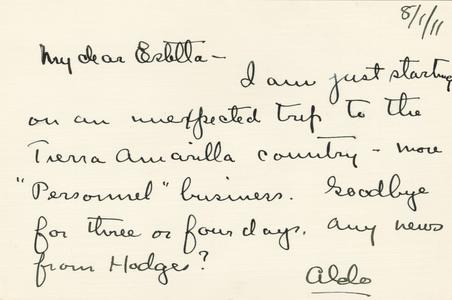 8/1/11
My dear Estella -
I am just starting
on an unexpected trip to the
Tierra Amarilla country - more
"Personnel" business. Goodbye
for three or four days. Any news
from Hodges?
Aldo